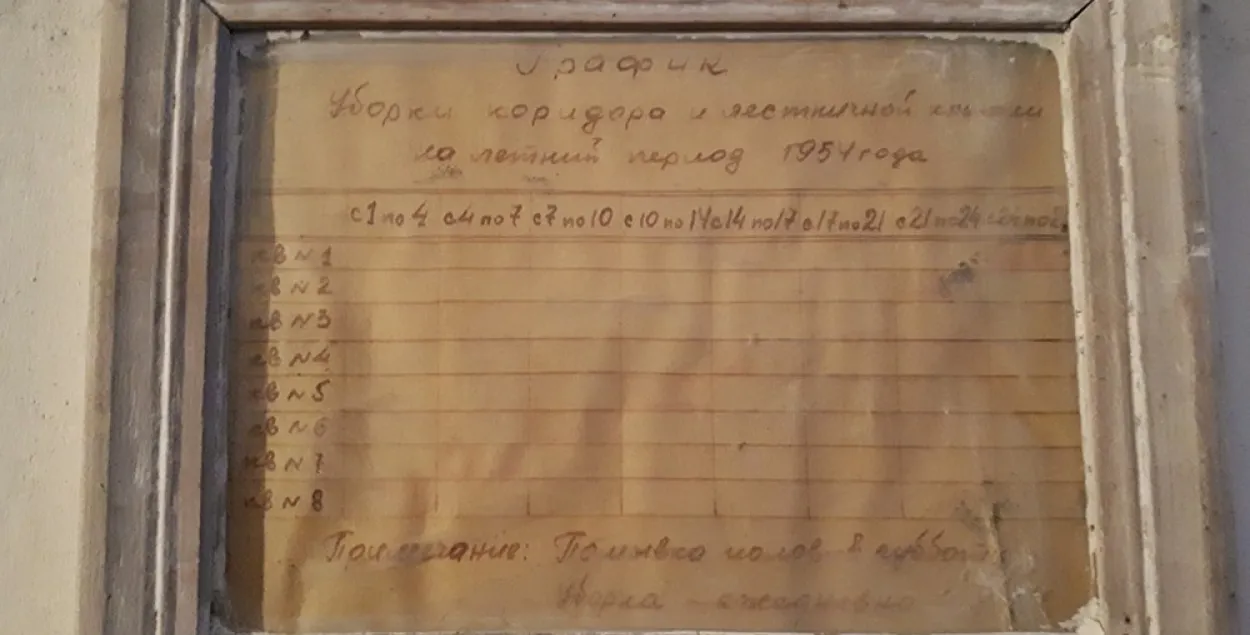 График
Уборки коридора и лестничной клетки
на летний период 1954 года
с 1 по 4 с 4 по 7 с 7 по 10 с 10 по 14 с 14 по 17 с 17 по 21 с 21 по 24
кв № 1
кв № 2
кв № 3
кв № 4
кв № 5
кв № 6
кв № 7
кв № 8
Примечание: Помывка полов в субботу
Уборка - ежедневно